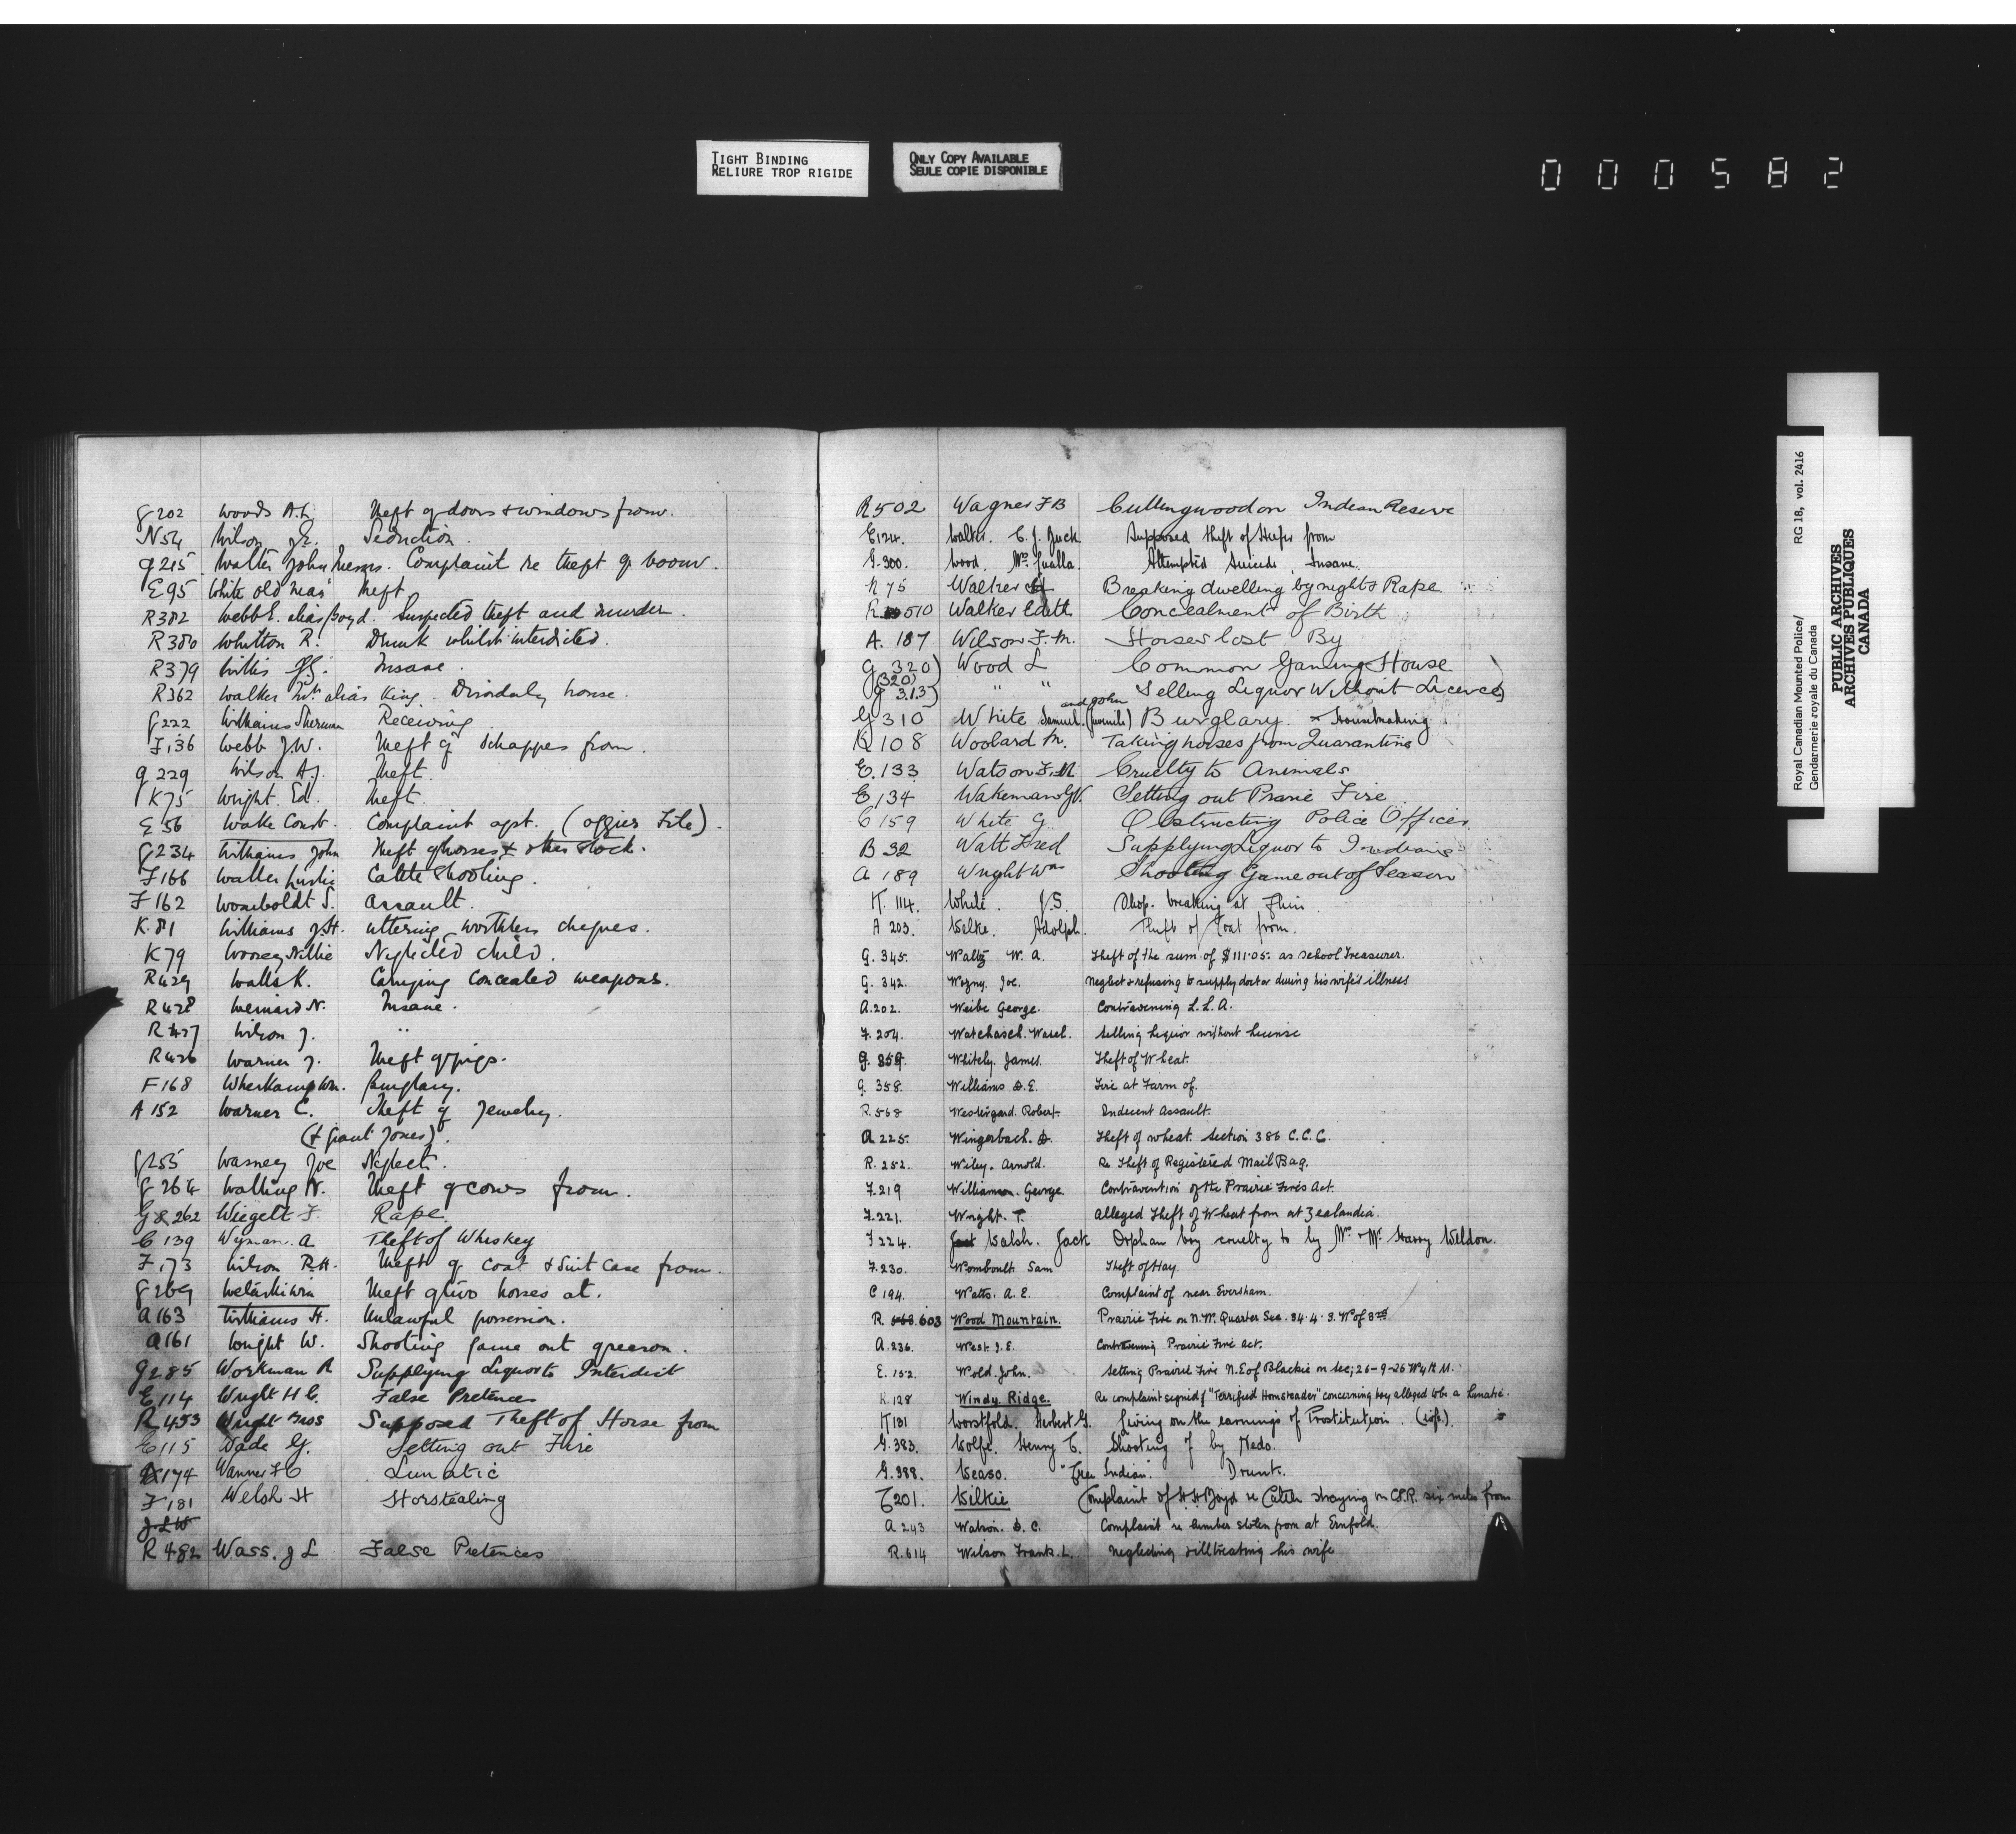 TIGHT BINDING
RELIURE TROP RIGIDE
ONLY COPY AVAILABLE
SEULE COPIE DISPONIBLE
000582
G 202 Woods A.L. Theft of doors & windows from.
N 54 Wilson J.E. Seduction.
G 215 Walter John Complaint re theft of
E 95 White old Theft
R 382 Webb E. alias Boyd. Suspected theft and murder.
R 380 Whitton R. Drunk whilst interdicted.
R 379 Willis Insane.
R 362 Walker alias King. Disorderly house.
G 222 Williams Sherman Receiving
F 136 Webb J.W. Theft of Schappes from.
G 229 Wilson A.J. Theft.
K 75 Wright Ed. Theft.
E 56 Wake Const. Complaint agst. (Offices File).
G 234 Williams John Theft of horses & other stock.
F 166 Waller Leslie Cattle Shooting.
F 162 Womboldt S. Assault.
K. 81 Williams J.H. Uttering worthless cheques.
K 79 Woosey Nellie Neglected child.
R 429 Walls K. Carrying concealed weapons.
R 428 Weniard N. Insane.
R 427 Wilson J. "
R 426 Warner J. Theft of pigs.
F 168 Wherkamp Wm. Burglary.
A 152 Warner C. Theft of Jewelry.
(& Grant Jones).
G 255 Wasney Joe Neglect.
G 264 Walling N. Theft of cows from.
G 262 Wiegelt F. Rape.
C 139 Wyman. A Theft of Whiskey
F 173 Wilson R.H. Theft of coat & suit case from.
G 269 Wetaskiwin Theft of two horses at.
A 163 Williams H. Unlawful possession.
A 161 Wright W. Shooting game out of season.
G 285 Workman R Supplying Liquor to Interdict
E 114 Wright H C. False Pretences
R 453 Wright Bros Supposed Theft of Horse from
E 115 Wade G. Setting out Fire
174 Wanner F C Lunatic
F 181 Welsh H Horstealing
J.L.W
R 482 Wass. J L False Pretences
R 502 Wagner F B Cullingwood on Indian Reserve
E 124. Walter. C. J. Buck Supposed theft of Heifer from
G. 300. Wood. Mrs. Gualla. Attempted Suicide, Insane.
N 75 Walker Breaking dwelling by night & Rape
R 510 Walker Edith Concealment of Birth
A. 187 Wilson F. M. Horses lost By
G 320) Wood L Common Gaming House
(320)
G 313) " " Selling Liquor Without Licence
and John
G 310 White Samuel. (juvenile) Burglary. & Housebreaking
K 108 Woolard M. Taking horses from Quarantine
E. 133 Watson F. M Cruelty to Animals
E 134 Wakeman G V. Setting out Prarie Fire
C 159 White G. Obstructing Police Officer
B 32 Watt Fred Supplying Liquor to Indians
A 189 Wright Wm Shooting Game out of Season
K. 114. White. J.S. Shop. breaking at
A 203. Welke. Adolph. Theft of Coat from.
G. 345. Waltz W. A. Theft of the sum of $111.05. as school Treasurer.
G. 342. Wozny. Joe. Neglect & refusing to supply doctor during his wife's illness
A. 202. Weibe George. Contravening L. L. A.
F. 204. Watchasch. Wasel. Selling Liquor without license
G. 359. Whitely. James. Theft of Wheat.
G. 358. Williams D. E. Fire at Farm of.
R. 568 Westergard. Robert. Indecent Assault.
A 225. Wingerbach. D. Theft of wheat. Section 386 C. C. C.
R. 252. Wiley. Arnold. Re Theft of Registered Mail Bag.
F. 219 Williamson. George. Contravention of the Prairie Fires Act.
F. 221. Wright. T. Alleged Theft of Wheat from at Zealandia.
F 224. Walsh. Jack Orphan boy cruelty to by Mr. & Mrs. Harry Weldon.
F. 230. Womboult Sam Theft of Hay.
C 194. Watts. A. E. Complaint of near Eversham.
R 603 Wood Mountain. Prairie Fire on N. W. Quarter Sec. 34. 4. 3. W of 3rd
A. 236. West. J. E. Contravening Prairie Fire Act.
E. 152. Wold. John. Setting Prairie Fire N. E of Blackie on Sec; 26-9-26 W 4 M.
K. 128 Windy Ridge. Re complaint signed of "Terrified Homsteader" concerning boy alleged to be a lunatic.
K 131 Worstfold. Herbert G. Living on the earnings of Prostitution.
G. 383. Wolfe. Henry C. Shooting of by Nedo.
G. 388. Weaso. "Cree Indian". Drunk.
C 201. Wilkie Complaint of H. H. Boyd re Cattle straying on C.P.R. six miles from
A 243 Watson. D. C. Complaint re lumber stolen from at Ernfold.
R. 614 Wilson Frank. L. Neglecting & illtreating his wife
Royal Canadian Mounted Police/
Gendarmerie royale du Canada
RG 18, vol. 2416
PUBLIC ARCHIVES
ARCHIVES PUBLIQUES
CANADA